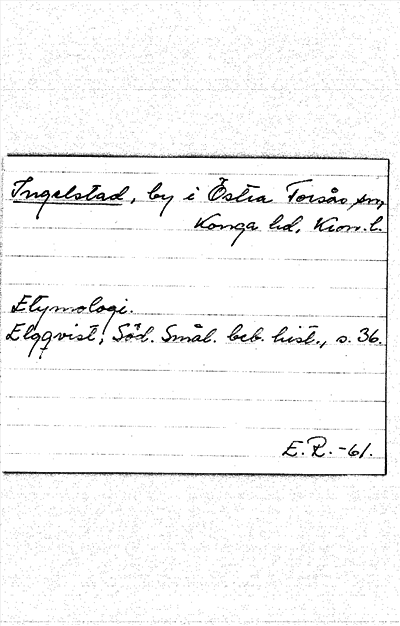 Ingelstad, by i Östra Torsås sn,
Konga hd, Kron. l.
Etymologi.
Elgqvist, Söd. Smål. beb. hist., s. 36.
E. R. -61.